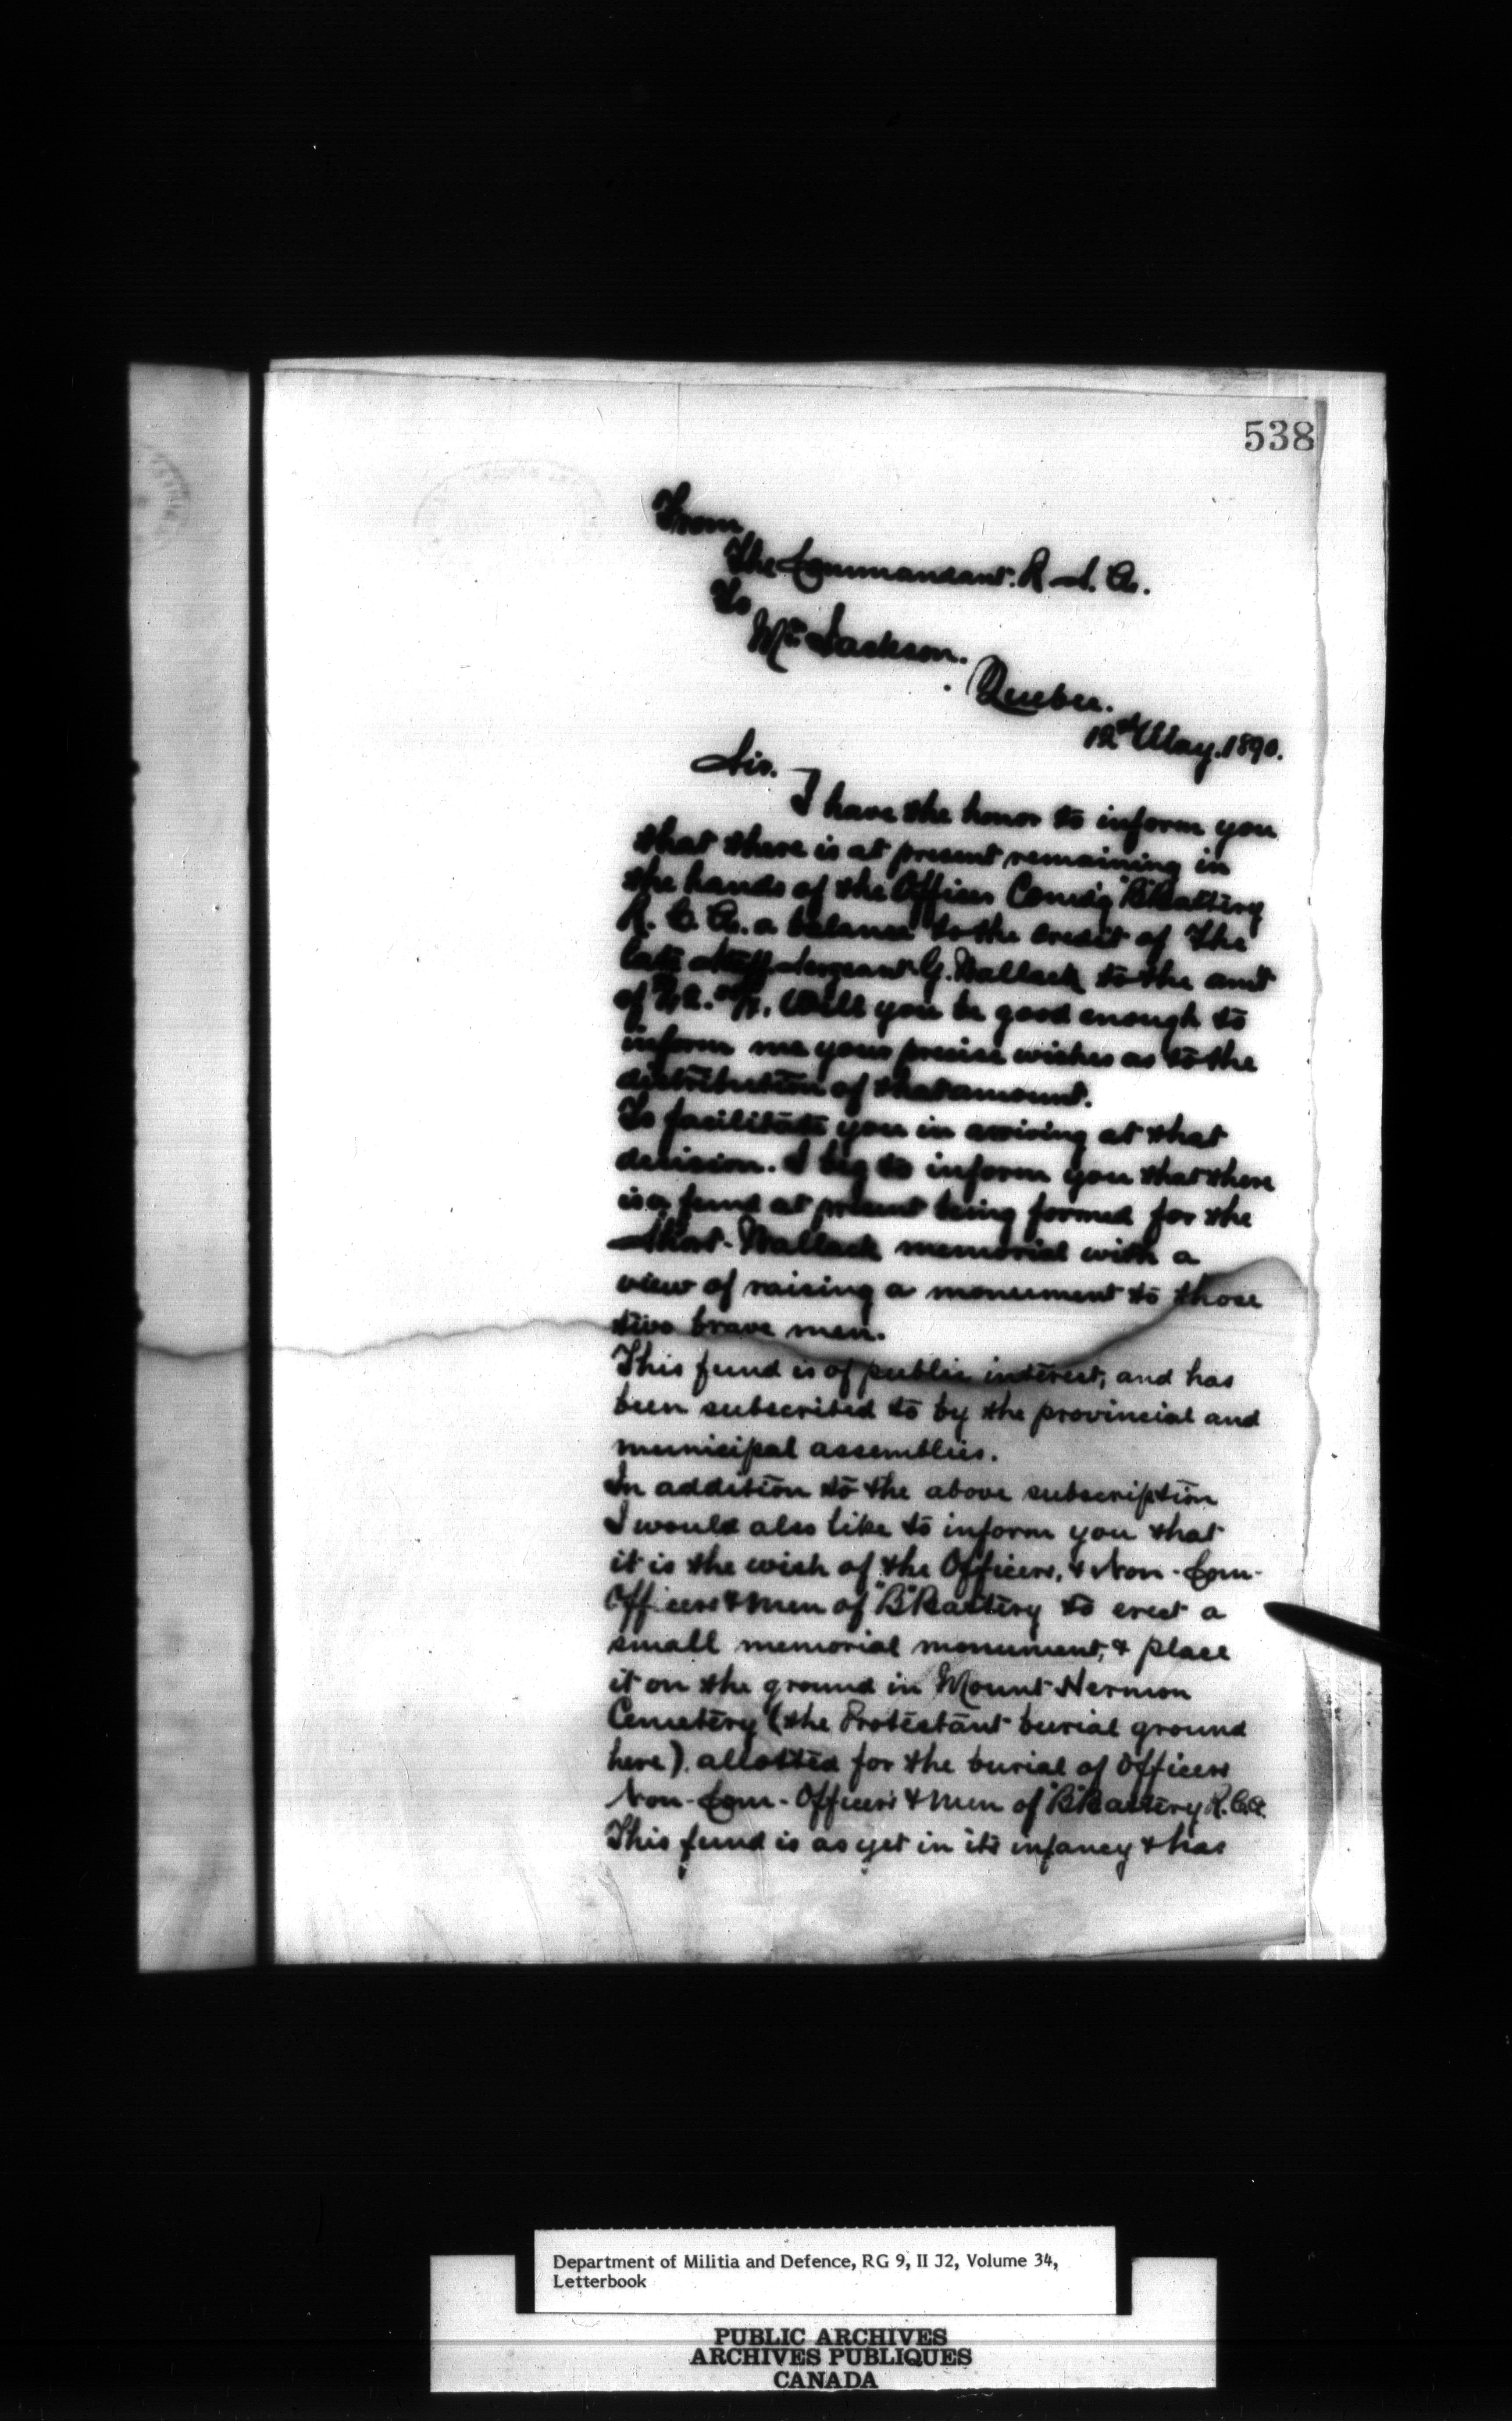 538
From
The Commandant. R. S. A.
To
Mr Jackson.
Quebec.
12th May. 1890.
Sir.
I have the honor to inform you
that there is at present remaining in
the hands of the Officer Comd'g "B" Battery
R. C. A. a balance to the credit of the
late Staff Sergeant G. Wallack to the amt
of Will you be good enough to
inform me your precise wishes as to the
distribution of that amount.
To facilitate you in arriving at that
decision. I beg to inform you that there
is a fund at present being formed for the
Short-Wallack memorial with a
view of raising a monument to those
two brave men.
This fund is of public interest, and has
been subscribed to by the provincial and
municipal assemblies.
In addition to the above subscription
I would also like to inform you that
it is the wish of the Officers, & Non-Com-
Officers & Men of "B" Battery to erect a
small memorial monument, & place
it on the ground in Mount Hermon
Cemetery (the Protestant burial ground
here). allotted for the burial of Officers
Non-Com-Officers & Men of "B" Battery R.C.A.
This fund is as yet in its infancy & has
Department of Militia and Defence, RG 9, II J2, Volume 34,
Letterbook
PUBLIC ARCHIVES
ARCHIVES PUBLIQUES
CANADA